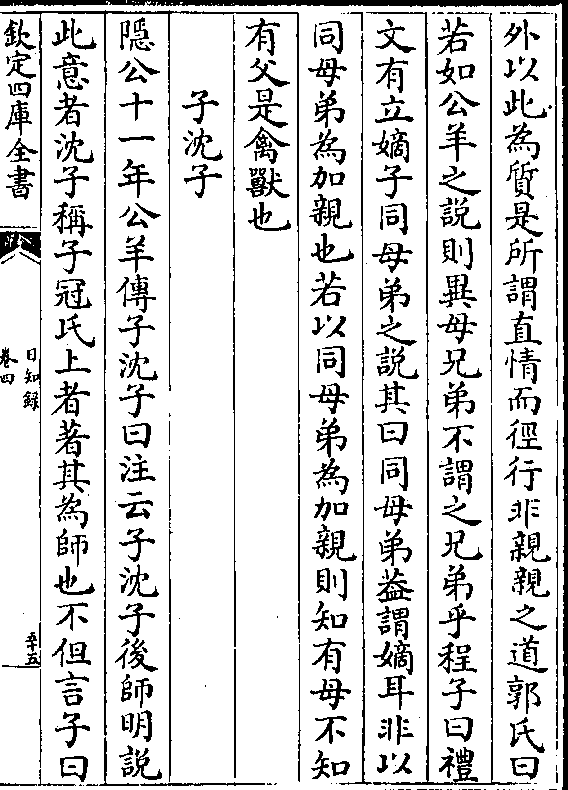 外以此為質是所謂直情而徑行非親親之道郭氏曰
若如公羊之説則異母兄弟不謂之兄弟乎程子曰禮
文有立嫡子同母弟之説其曰同母弟葢謂嫡耳非以
同母弟為加親也若以同母弟為加親則知有母不知
有父是禽獸也
子沈子
隱公十一年公羊傳子沈子曰注云子沈子後師明説
此意者沈子稱子冠氏上者著其為師也不但言子曰
欽定四庫全書
日知録
卷四
五十五